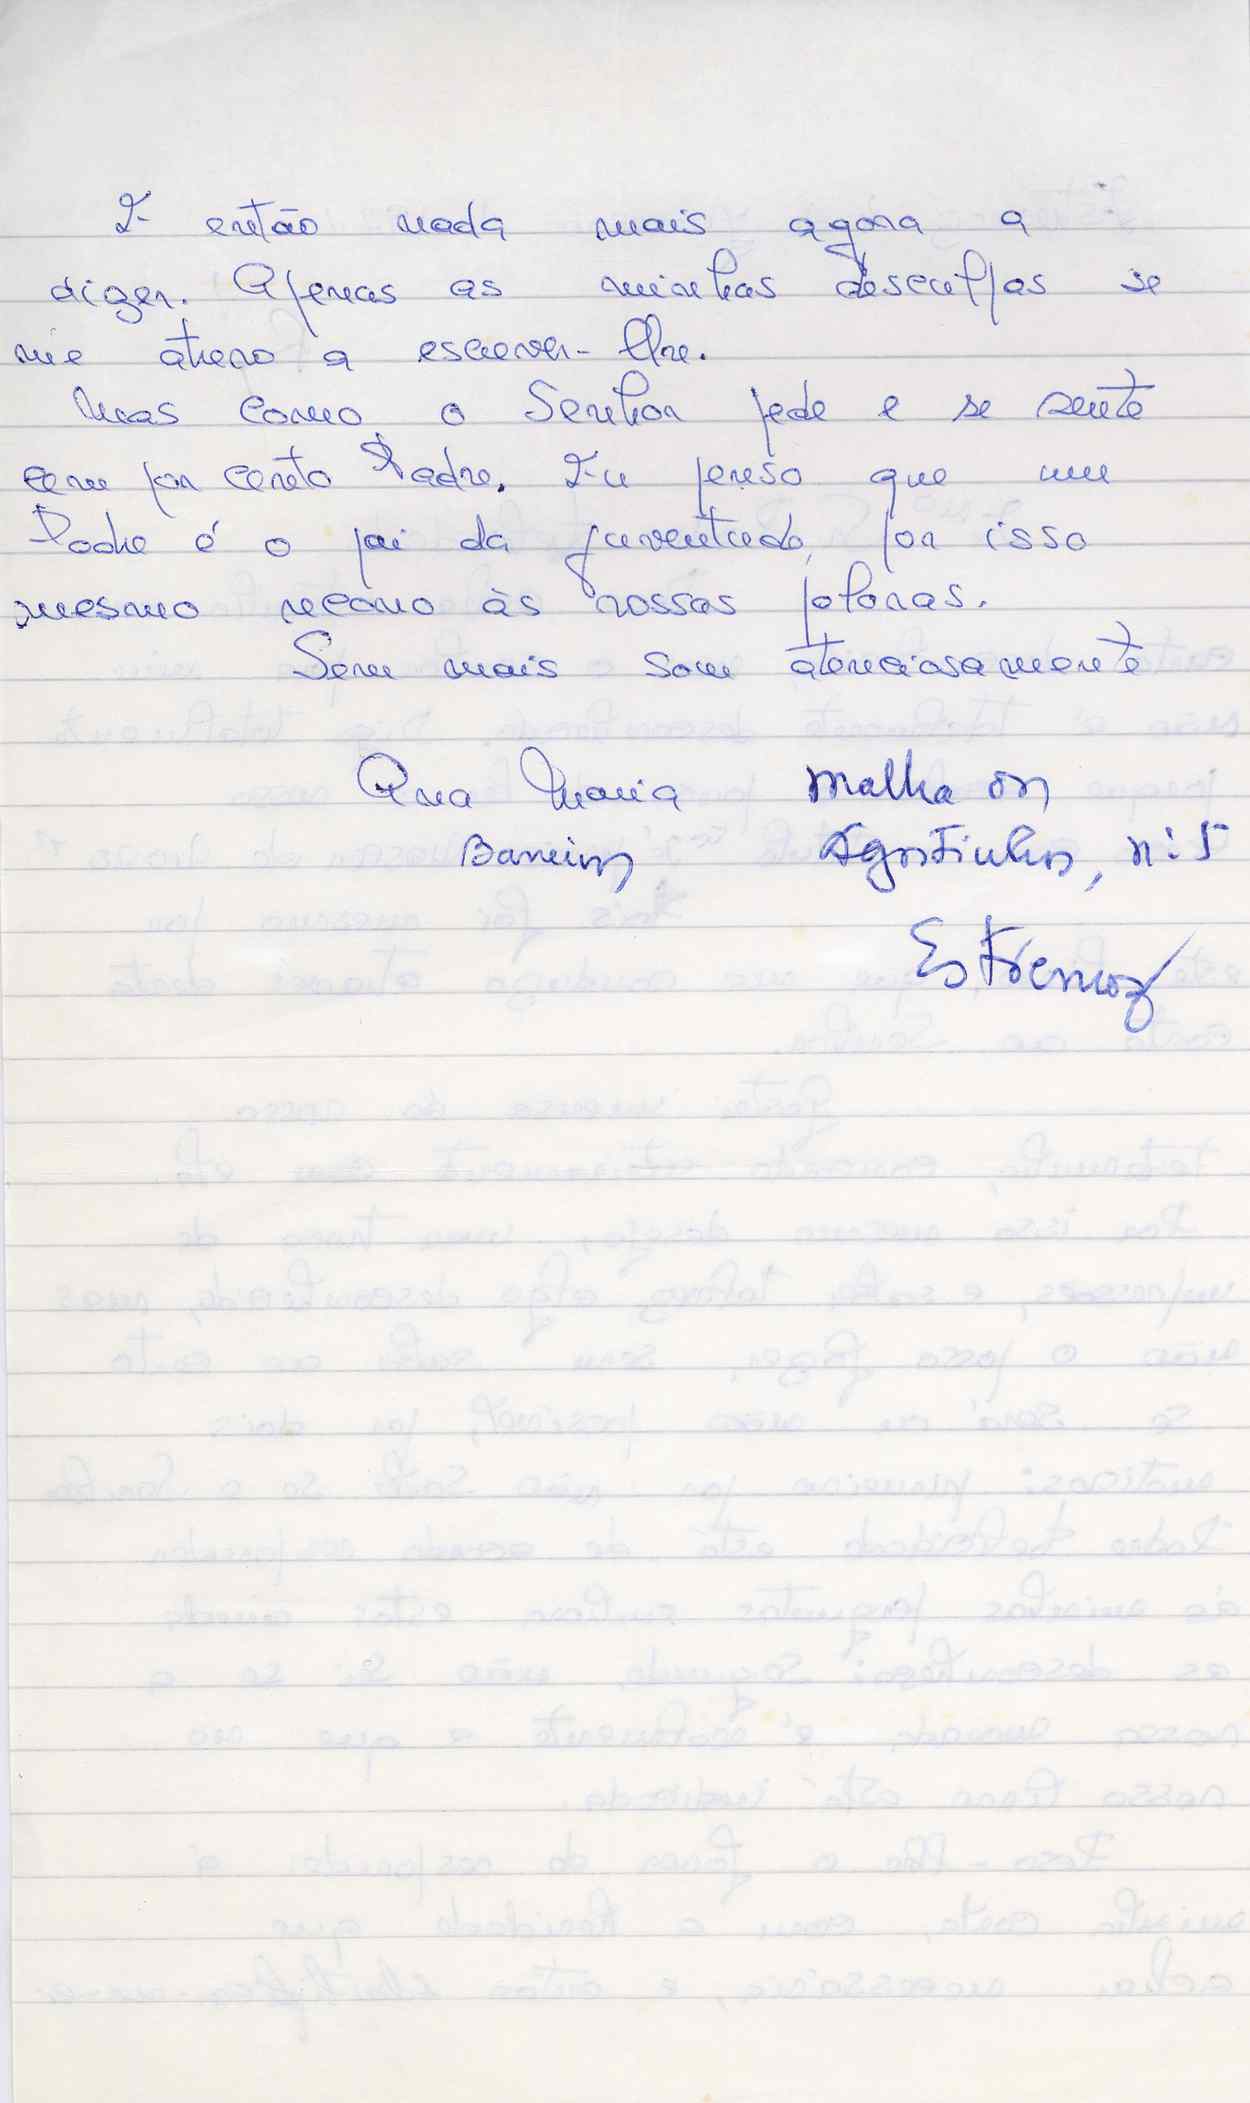 E então nada mais agora a
dizer. Apenas as minhas desculpas se
me atrevo a escrever-lhe.
Mas como o Senhor pede e se sente
com por certo Padre. Eu penso que um
Padre é o pai da juventude, por isso
mesmo recorro às vossas
Sem mais sou atenciosamente
Ana Maria Malha on
Barreiros Agostinho, nº 5
Estremoz